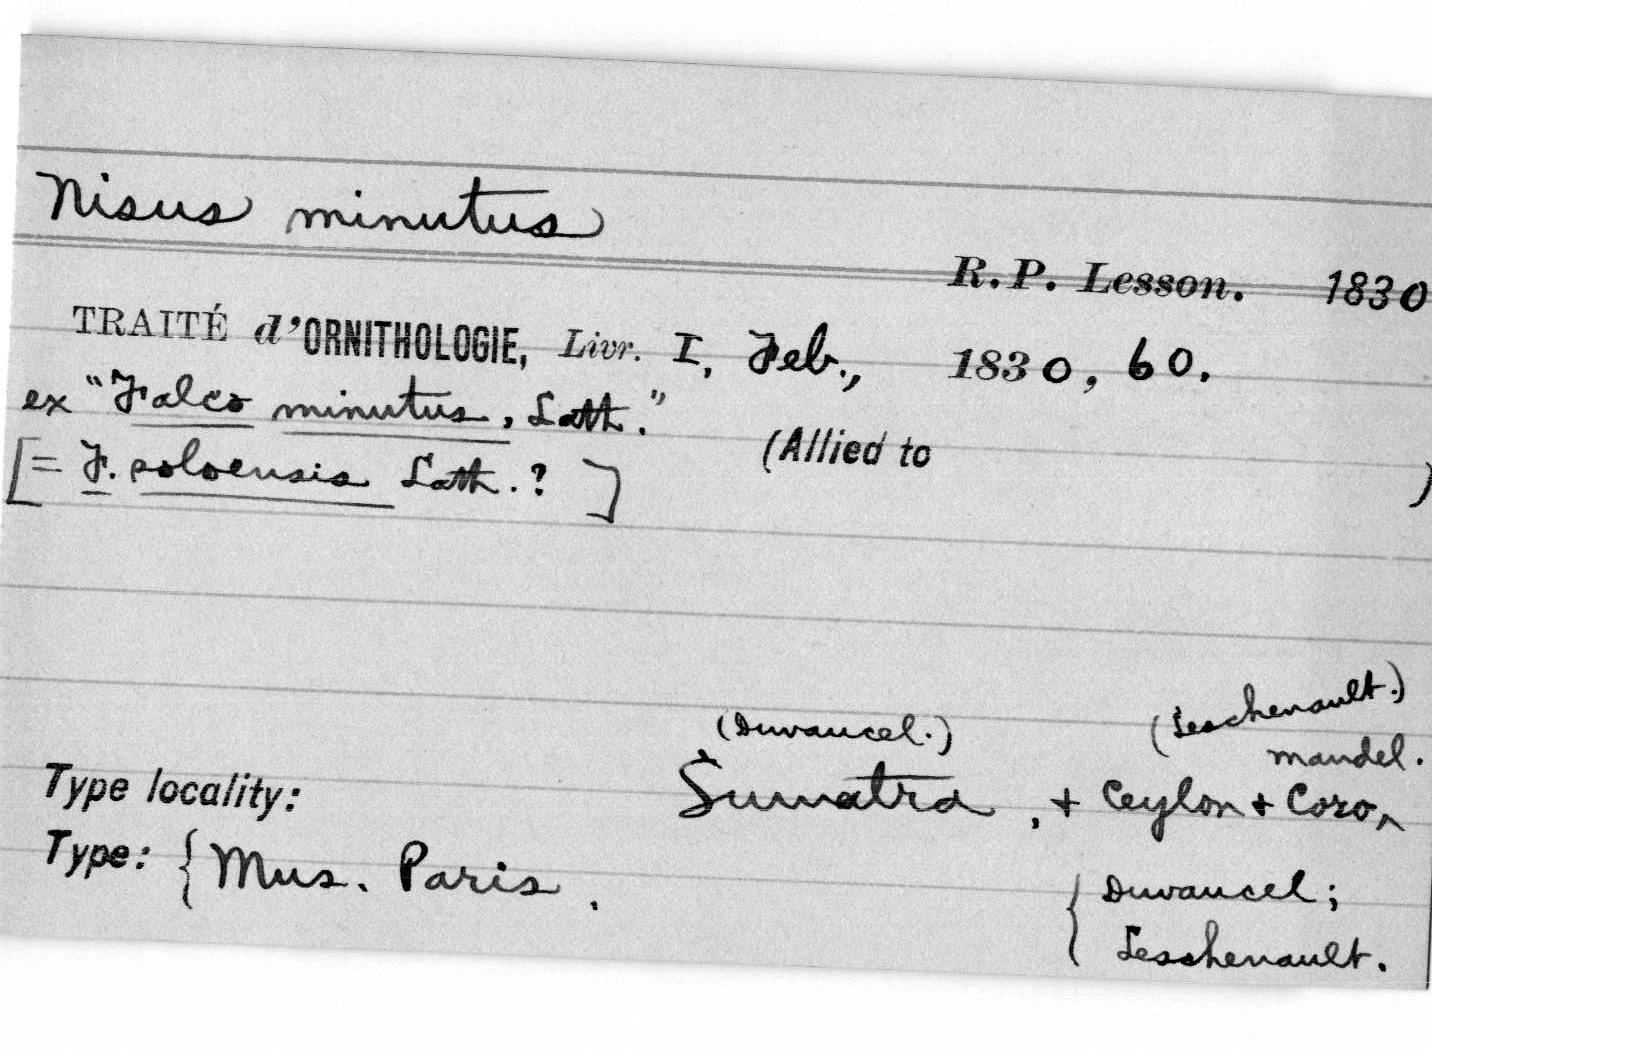 Nisus minutus
R.P. Lesson. 1830
TRAITÉ d'ORNITHOLOGIE, Livr. I, Feb., 1830, 60.
ex "Falco minutus, Lath."
(Allied to )
[= F. soloensis Lath. ? ]
(Duvaucel.) (Leschenault.)
mandel.
Type locality: Sumatra, + Ceylon + Coro‸
Type: { Mus. Paris. { Duvaucel;
Leschenault.